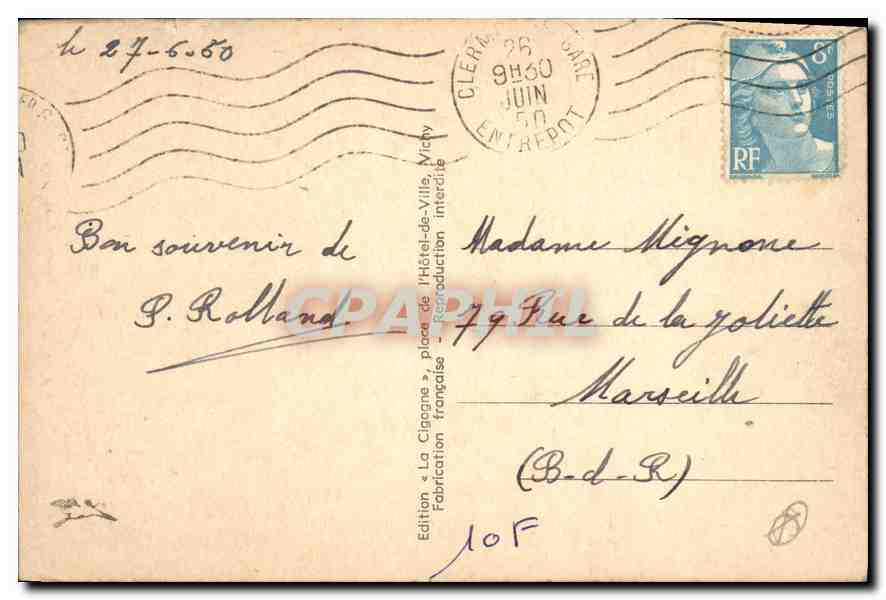 le 27-6-50
Bon souvenir de
P. Rolland
Edition « La Cigogne », place de l'Hôtel-de-Ville, Vichy
Fabrication française - Reproduction interdite
GARE
26
9H30
JUIN
50
ENTREPOT
8F
POSTES
RF
Madame Mignone
79 Rue de la Joliette
Marseille
(B-d-R)
10F
CPAPHIL